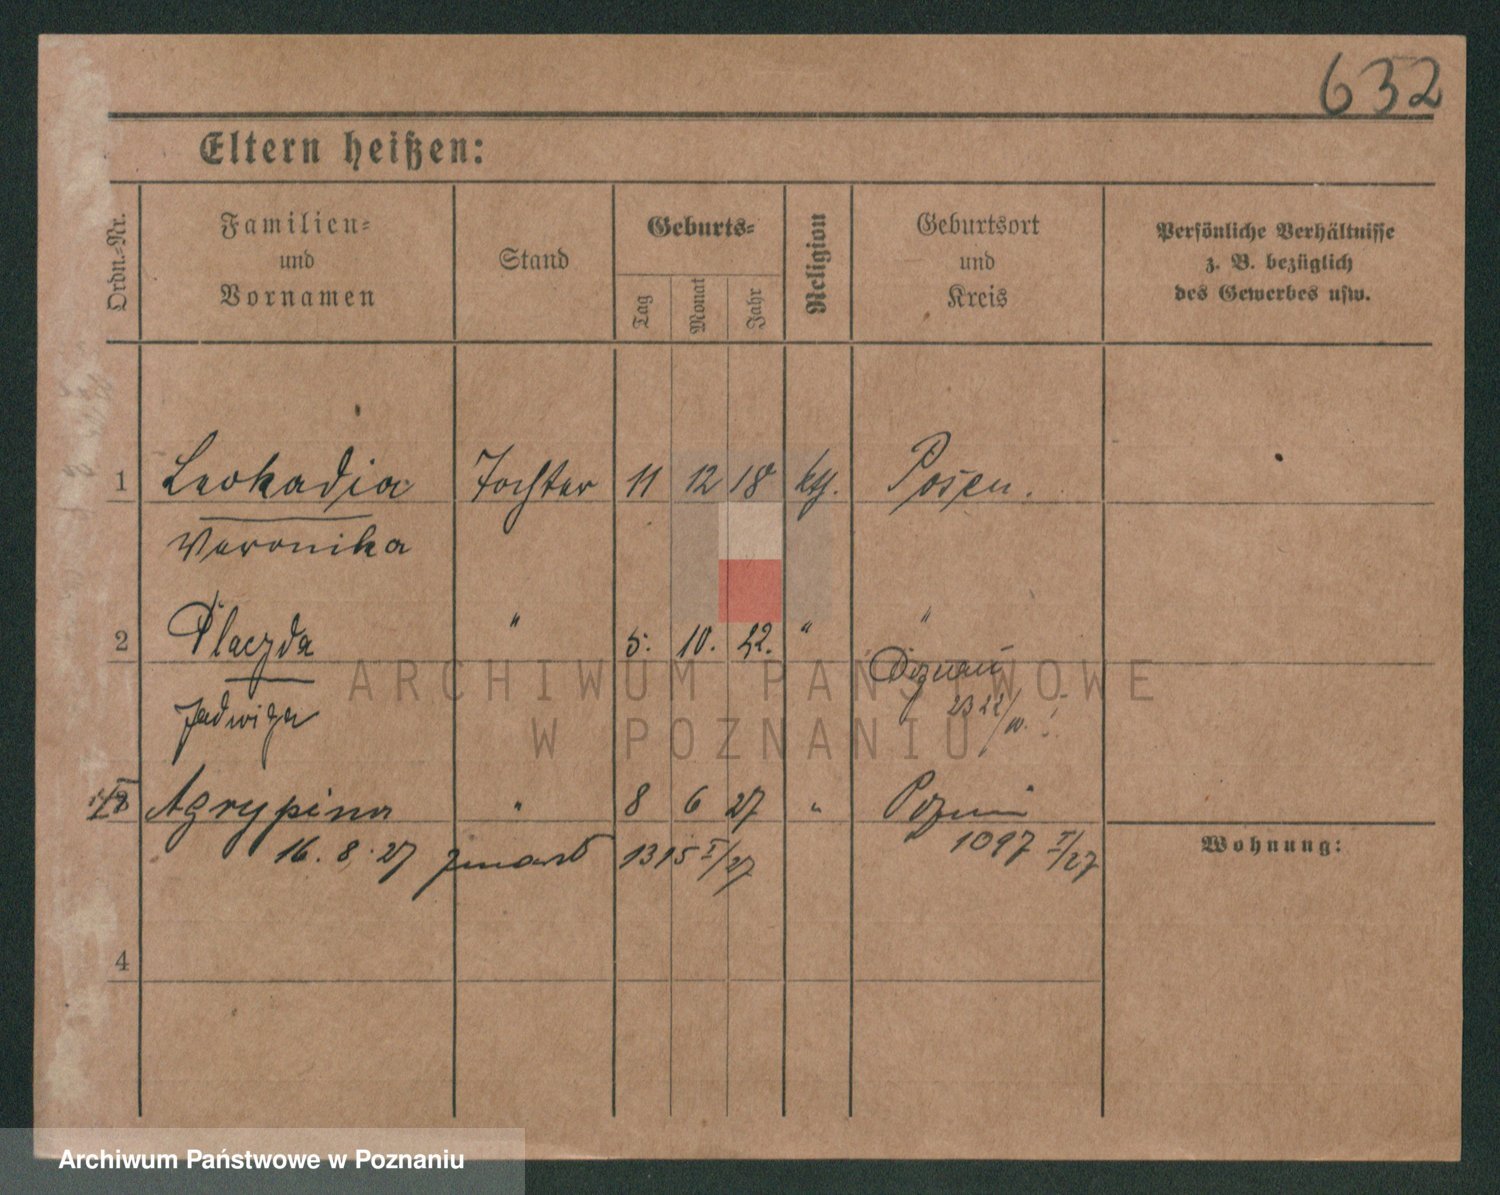 632
Eltern heißen:
Ordn.-Nr.
Familien-
und
Vornamen
Stand
Geburts-
Tag
Monat
Jahr
Religion
Geburtsort
und
Kreis
Persönliche Verhältnisse
z. B. bezüglich
des Gewerbes usw.
1 Leokadia Tochter 11 12 18 kth. Posen.
Veronika
2 Placyda " 5. 10. 22. " "
Poznań
Jadwiga 2322/
Agrypina " 8 6 27 " Poznań
16. 8. 27 1315 I/27 1097 I/27
Wohnung:
4
ARCHIWUM PAŃSTWOWE
W POZNANIU
Archiwum Państwowe w Poznaniu